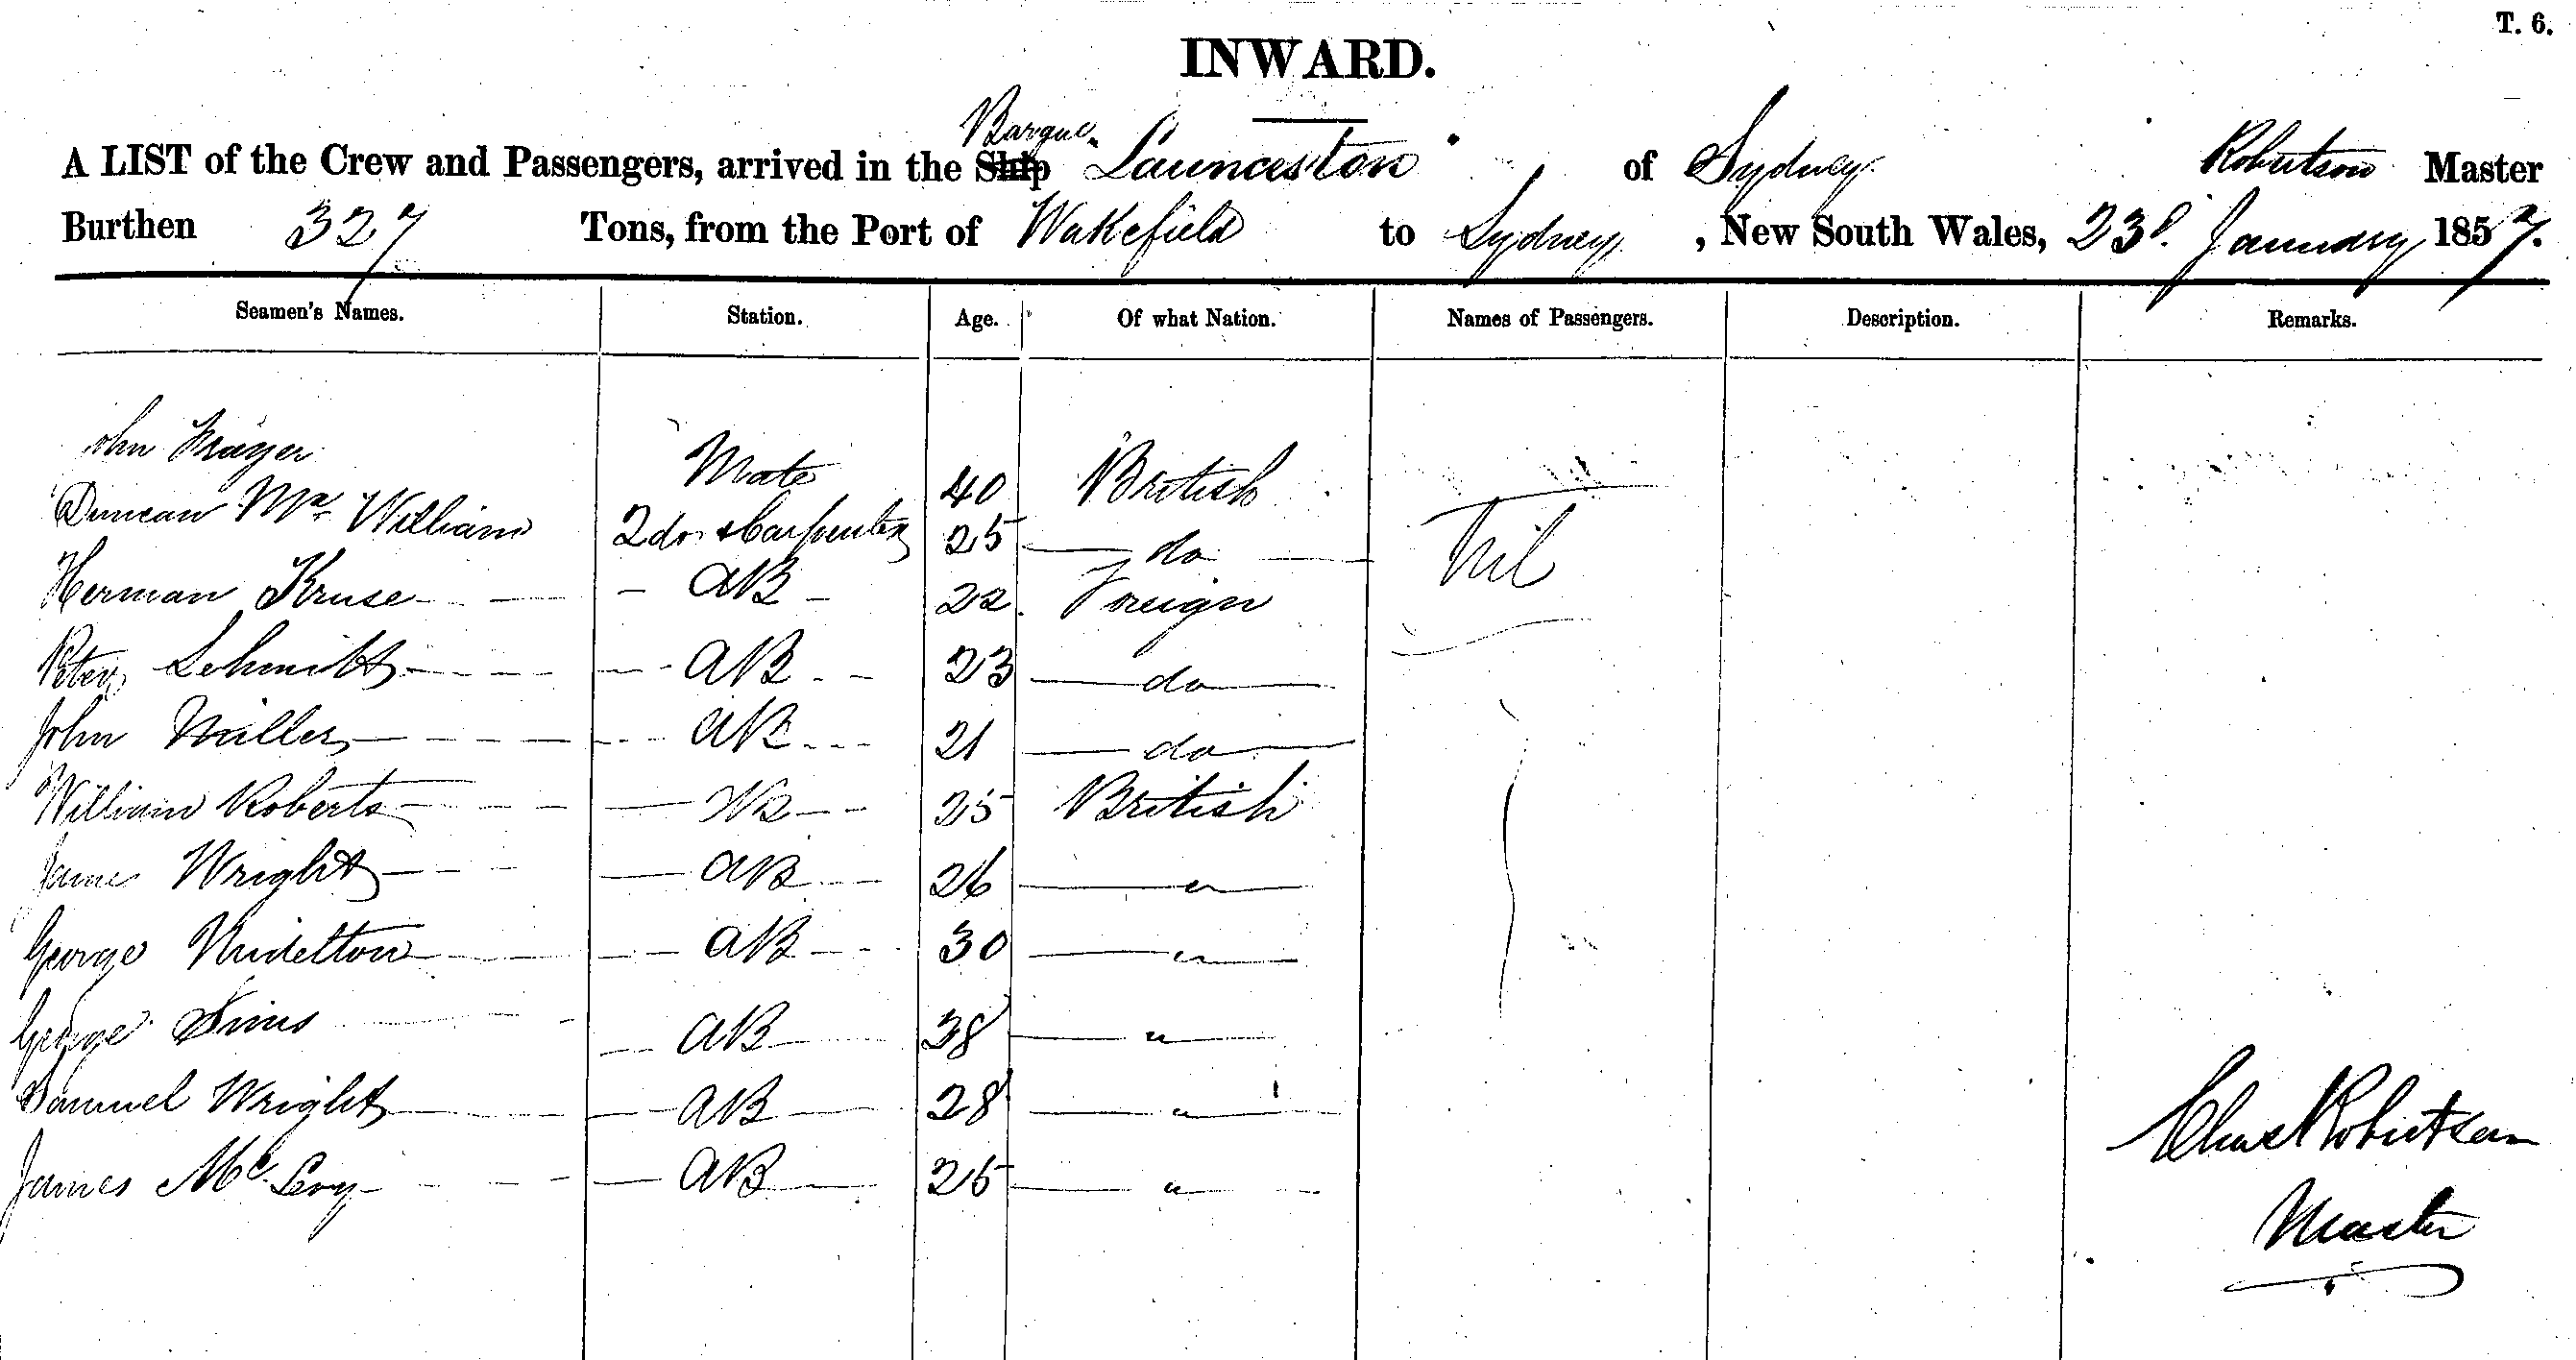 T. 6.
INWARD.
Barque
A LIST of the Crew and Passengers, arrived in the Ship Launceston of Sydney Robertson Master
Burthen 327 Tons, from the Port of Wakefield to Sydney, New South Wales, 23d. January 1857.
Seamen's Names. Station. Age. Of what Nation. Names of Passengers. Description. Remarks.
John Mate 40 British
Duncan Mc William 2 do & Carpenter 25 do Nil
Herman Kruse AB 22 Foreign
Peter Schmitt AB 23 do
John Miller AB 21 do
William Roberts AB 25 British
James Wright AB 26 "
George AB 30 "
George Sims AB 38 "
Samuel Wright AB 28 "
James Mc Levy AB 25 "
Chas Robertson
Master